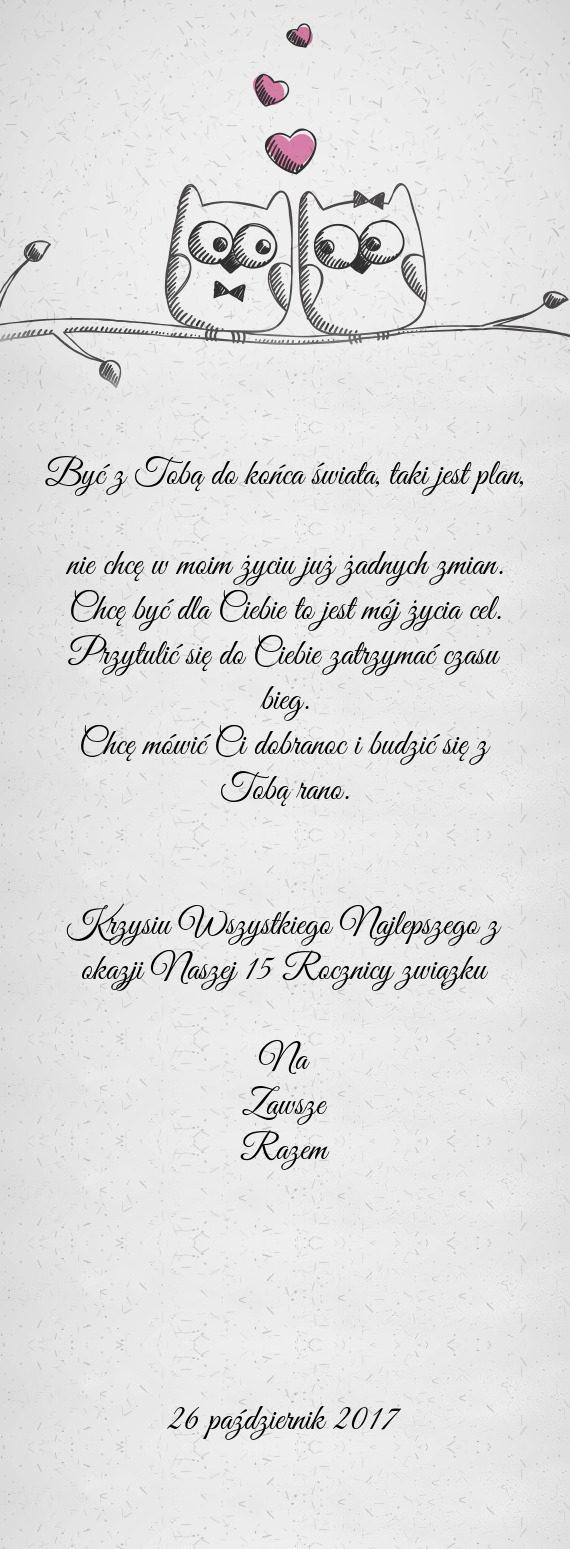 Być z Tobą do końca świata, taki jest plan,
nie chcę w moim życiu już żadnych zmian.
Chcę być dla Ciebie to jest mój życia cel.
Przytulić się do Ciebie zatrzymać czasu
bieg.
Chcę mówić Ci dobranoc i budzić się z
Tobą rano.
Krzysiu Wszystkiego Najlepszego z
okazji Naszej 15 Rocznicy związku
Na
Zawsze
Razem
26 październik 2017